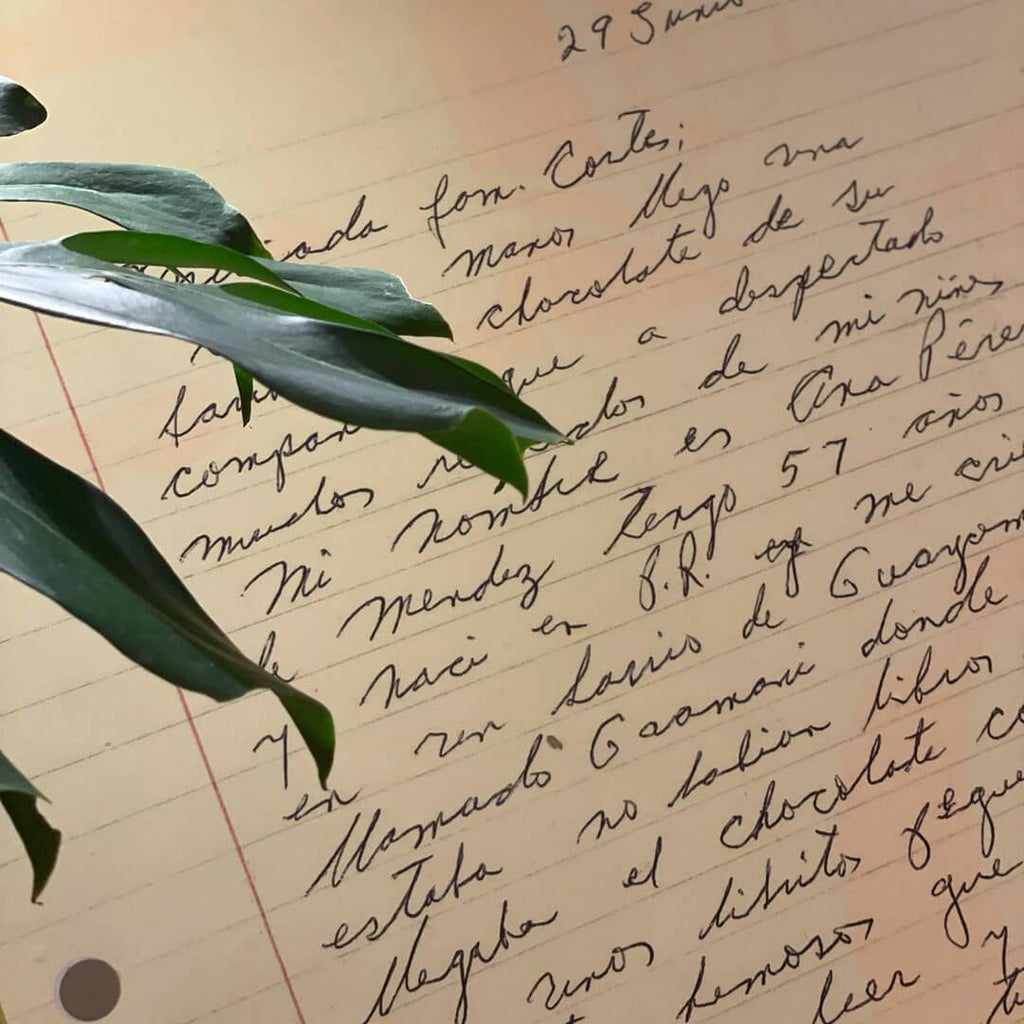 29 Junio
fam. Cortes;
manos llego una
chocolate de su
que a despertado
muchos de mi niñes
Mi nombre es Ana Pérez
de Mendez tengo 57 años
y naci en P.R. me
en un barrio de
llamado Guamani donde
estaba no habian libros
llegaba el chocolate
unos libritos
hermosos que
leer y